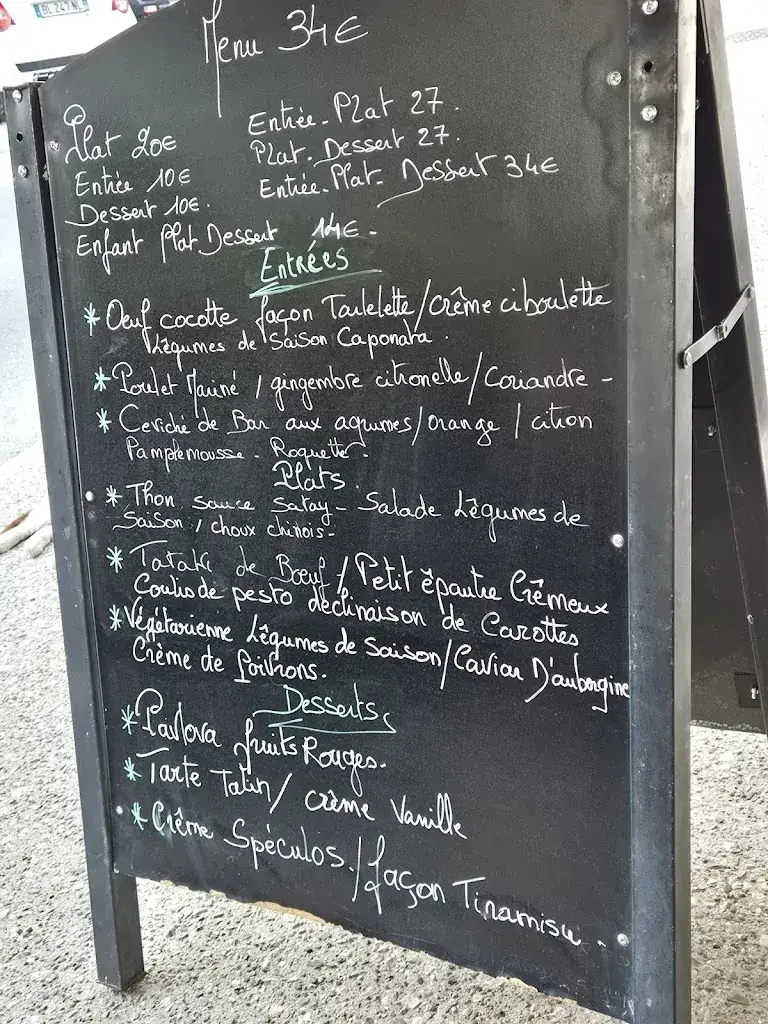 BL 247 NL
Menu 34€
Plat 20€
Entrée 10€
Dessert 10€.
Enfant Plat Dessert 14€-
Entrée-Plat 27.
Plat-Dessert 27.
Entrée-Plat-Dessert 34€
Entrées
* Oeuf cocotte façon Tartelette/Crême ciboulette
Légumes de Saison Caponata.
* Poulet Mariné / gingembre citronelle/Coriandre -
* Ceviché de Bar aux agrumes/orange / citron
Pamplemousse - Roquette.
Plats.
* Thon sauce satay - Salade Légumes de
Saison / choux chinois -
* Tataki de Bœuf / Petit épautre Crêmeux
Coulis de pesto déclinaison de Carottes
* Végétarienne Légumes de Saison/Caviar D'aubergine
Crème de Poivrons.
Desserts
* Pavlova fruits Rouges.
* Tarte Tatin / crème Vanille
* Crême Spéculos./façon Tiramisu -